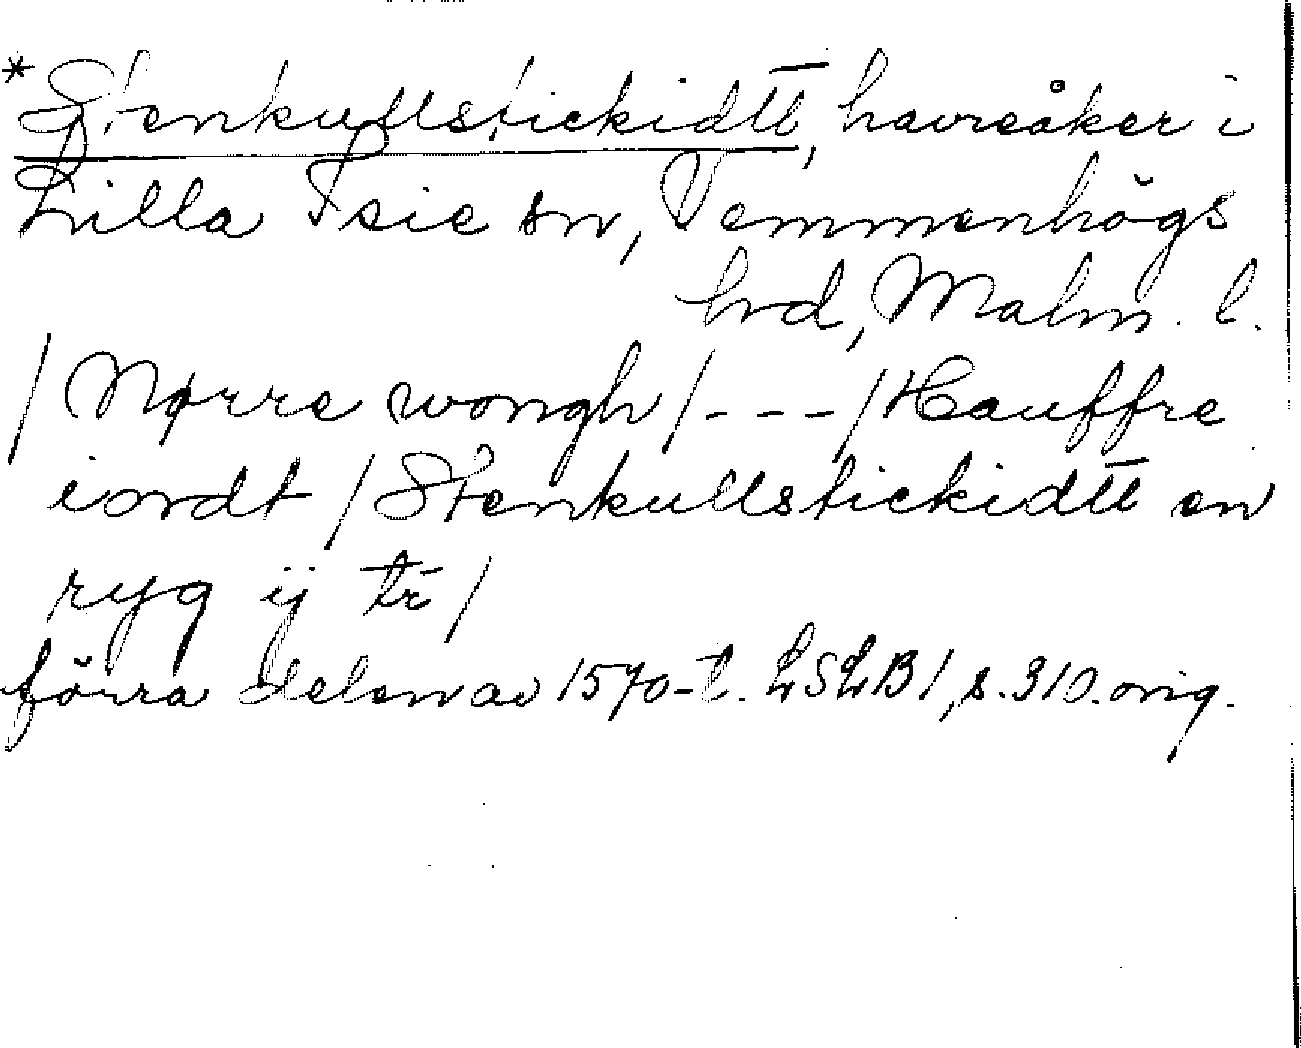 *Stenkullstickidtt, havreåker i
Lilla Isie sn, Vemmenhögs
hrd, Malm. l.
/Nørre wongh/---/Hauffre
iordt/Stenkullstickidtt en
ryg ij tr/
förra delen av 1570-t. LSLB1, s.310.orig.